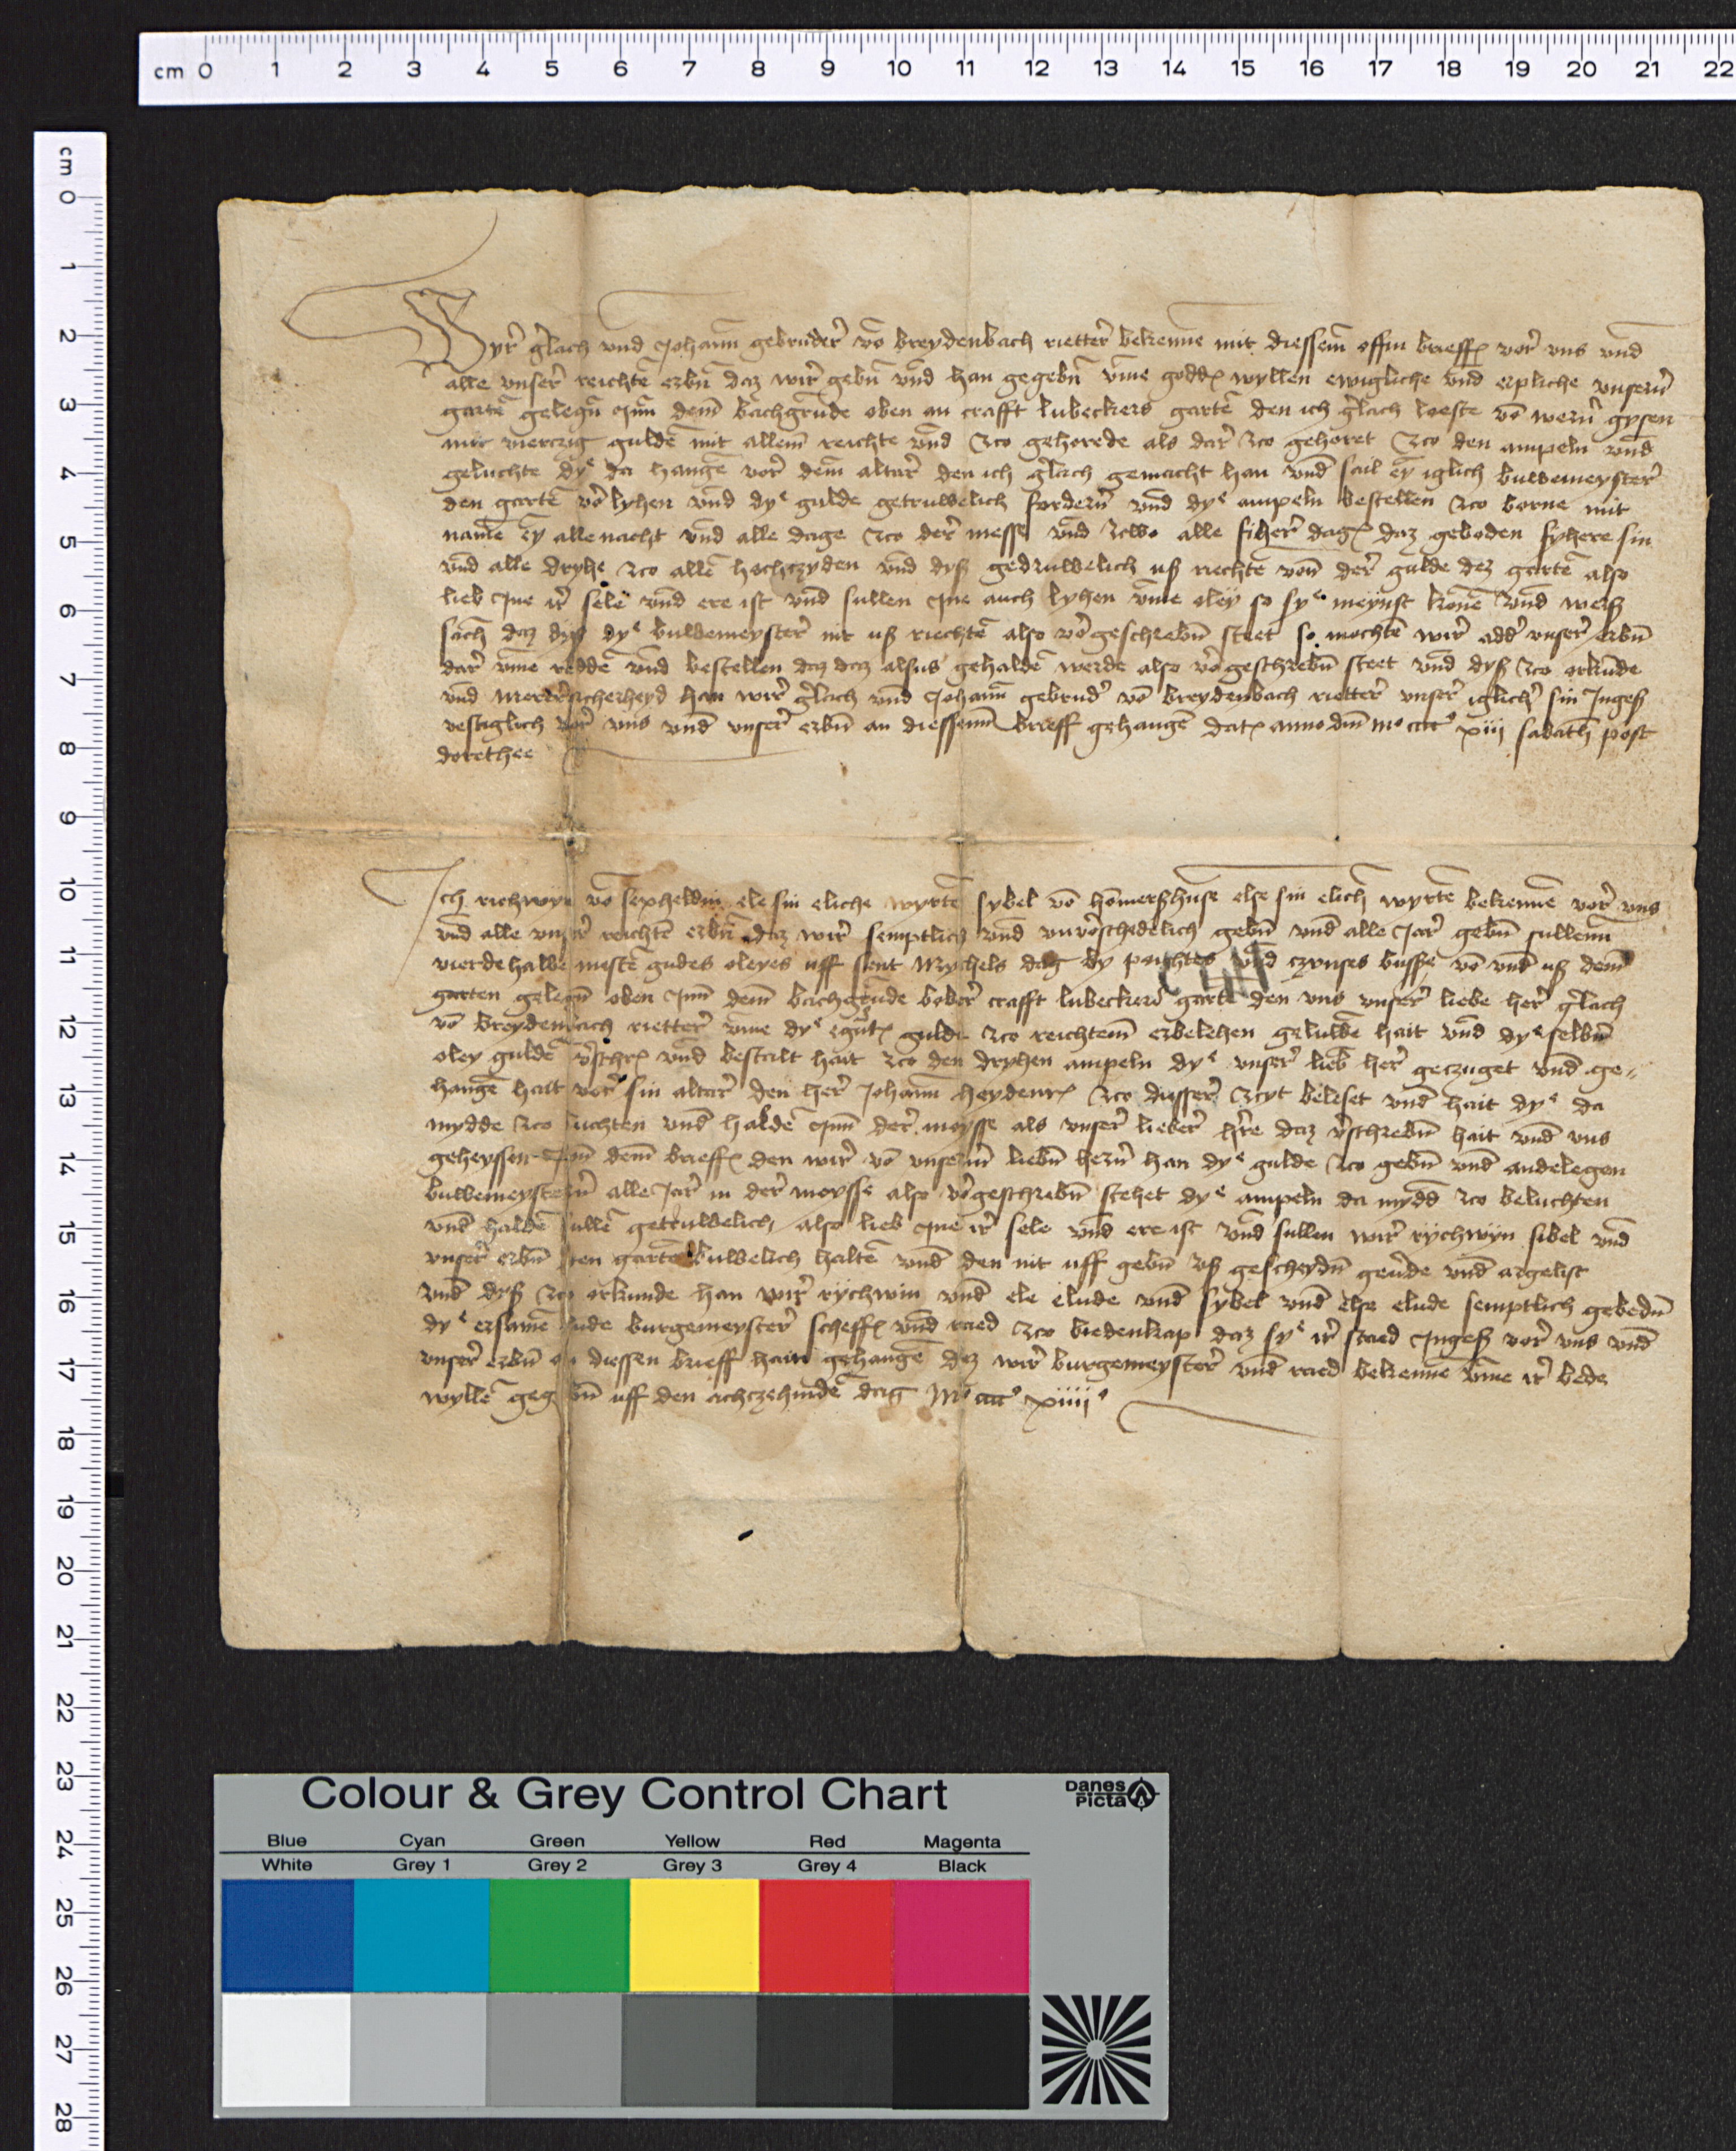 cm 0 1 2 3 4 5 6 7 8 9 10 11 12 13 14 15 16 17 18 19 20 21 22
cm 0 1 2 3 4 5 6 7 8 9 10 11 12 13 14 15 16 17 18 19 20 21 22 23 24 25 26 27 28
Wyr gerlach vnd Johann gebruder vō breydenbach rietter bekenne mit diessem offin brieff vor vns vnd
alle vnser reichte erbn daz wir gebn vnd han gegebn vme godd wyllen ewigliche vnd erpliche vnsern
garte gelegn Inn dem bachgrunde oben an crafft lubeckers garte den ich gerlach loeste vō gysen
mit vierczig gulde mit allem reichte vnd zco gehorede als dar zco gehoret zco den ampeln vnd
geluchte dye da hange vor dem altar den ich gerlach gemacht han vnd sail ey iglich buwemeyster
den garte vō lyhen vnd dye gulde getruwelich fordern vnd dye ampeln bestellen zco borne mit
name ey alle nacht vnd alle dage zco der messe vnd zcwo alle dag daz geboden fyhere sin
vnd alle dryhe zco alle hochczyden vnd dyß gedruwelich uß riechte von der gulde dez garte also
lieb Ine ir sele vnd ere ist vnd sullen Ine auch lyhen vme oley so sye meynst kone vnd werß
sach daz dyß dye buwemeyster nit uß riechte also vorgeschrebn steet so mochte wir adder vnser erbn
dar vme redde vnd bestellen daz daz alsus gehalde werde also vorgeschrebn steet vnd dyß zco orkunde
vnd merer sicherheyd han wir gerlach vnd Johann gebruder vō breydenbach rietter vnser iglicher sin Ingeß
vestiglich vor vns vnd vnser erbn an diessenn brieff gehange dat anno dm mo cccc xiii sabath post
dorethee
Ich richwyn vō sexheldin ele sin eliche wyrte sybel vō homerßhuse else sin elich wyrte bekenne vor vns
vnd alle vnser reichte erbn daz wir semptlich vnd vnverschedelich gebn vnd alle Jar gebn sullenn
vierdehalbe meste gudes oleyes uff sent Mychels dag dy pachtes vnd czynses vō vnd uß dem
garten gelegn oben Inn dem bachgrunde bober crafft lubeckers garte den vns vnser liebe her gerlach
vō breydenbach rietter vme dye gulde zco reichtem erbelehen geluwe hait vnd dye selbn
oley gulde verschr vnd bestalt hait zco den dryhen ampeln dye vnser lieb her geczuget vnd ge-
hange hait vor sin altar den her Johann heydenr zco disser zcyt beleset vnd hait dye da
mydde zco luchten vnd halde Inn der moysse als vnser lieber here daz verschrebn hait vnd vns
geheyssen Inn dem brieff den wir vō vnserm liebn hern han dye gulde zco gebn vnd andelegen
buwemeystern alle Jar in der moysse also vorgeschrebn stehet dye ampeln da mydd zco beluchten
vnd halde sulle getruwelich also lieb Ine ir sele vnd ere ist vnd sullen wir rychwyn sibel vnd
vnser erbn den garte buwelich halte vnd den nit uff gebn uß gescheydn geuerde vnd argelist
vnd dyß zco orkunde han wir rychwin vnd ele elude vnd sybel vnd else elude semptlich gebedn
dye ersame lude burgemeyster scheff vnd raed zco biedenkap daz sye ir staed Ingeß vor vns vnd
vnser erbn an diessen brieff hain gehange dez wir burgemeyster vnd raed bekenne vme ir bede
wylle gegebn uff den achczehinde dag Mo cccc xiiii
Colour & Grey Control Chart
Danes Picta
Blue Cyan Green Yellow Red Magenta
White Grey 1 Grey 2 Grey 3 Grey 4 Black